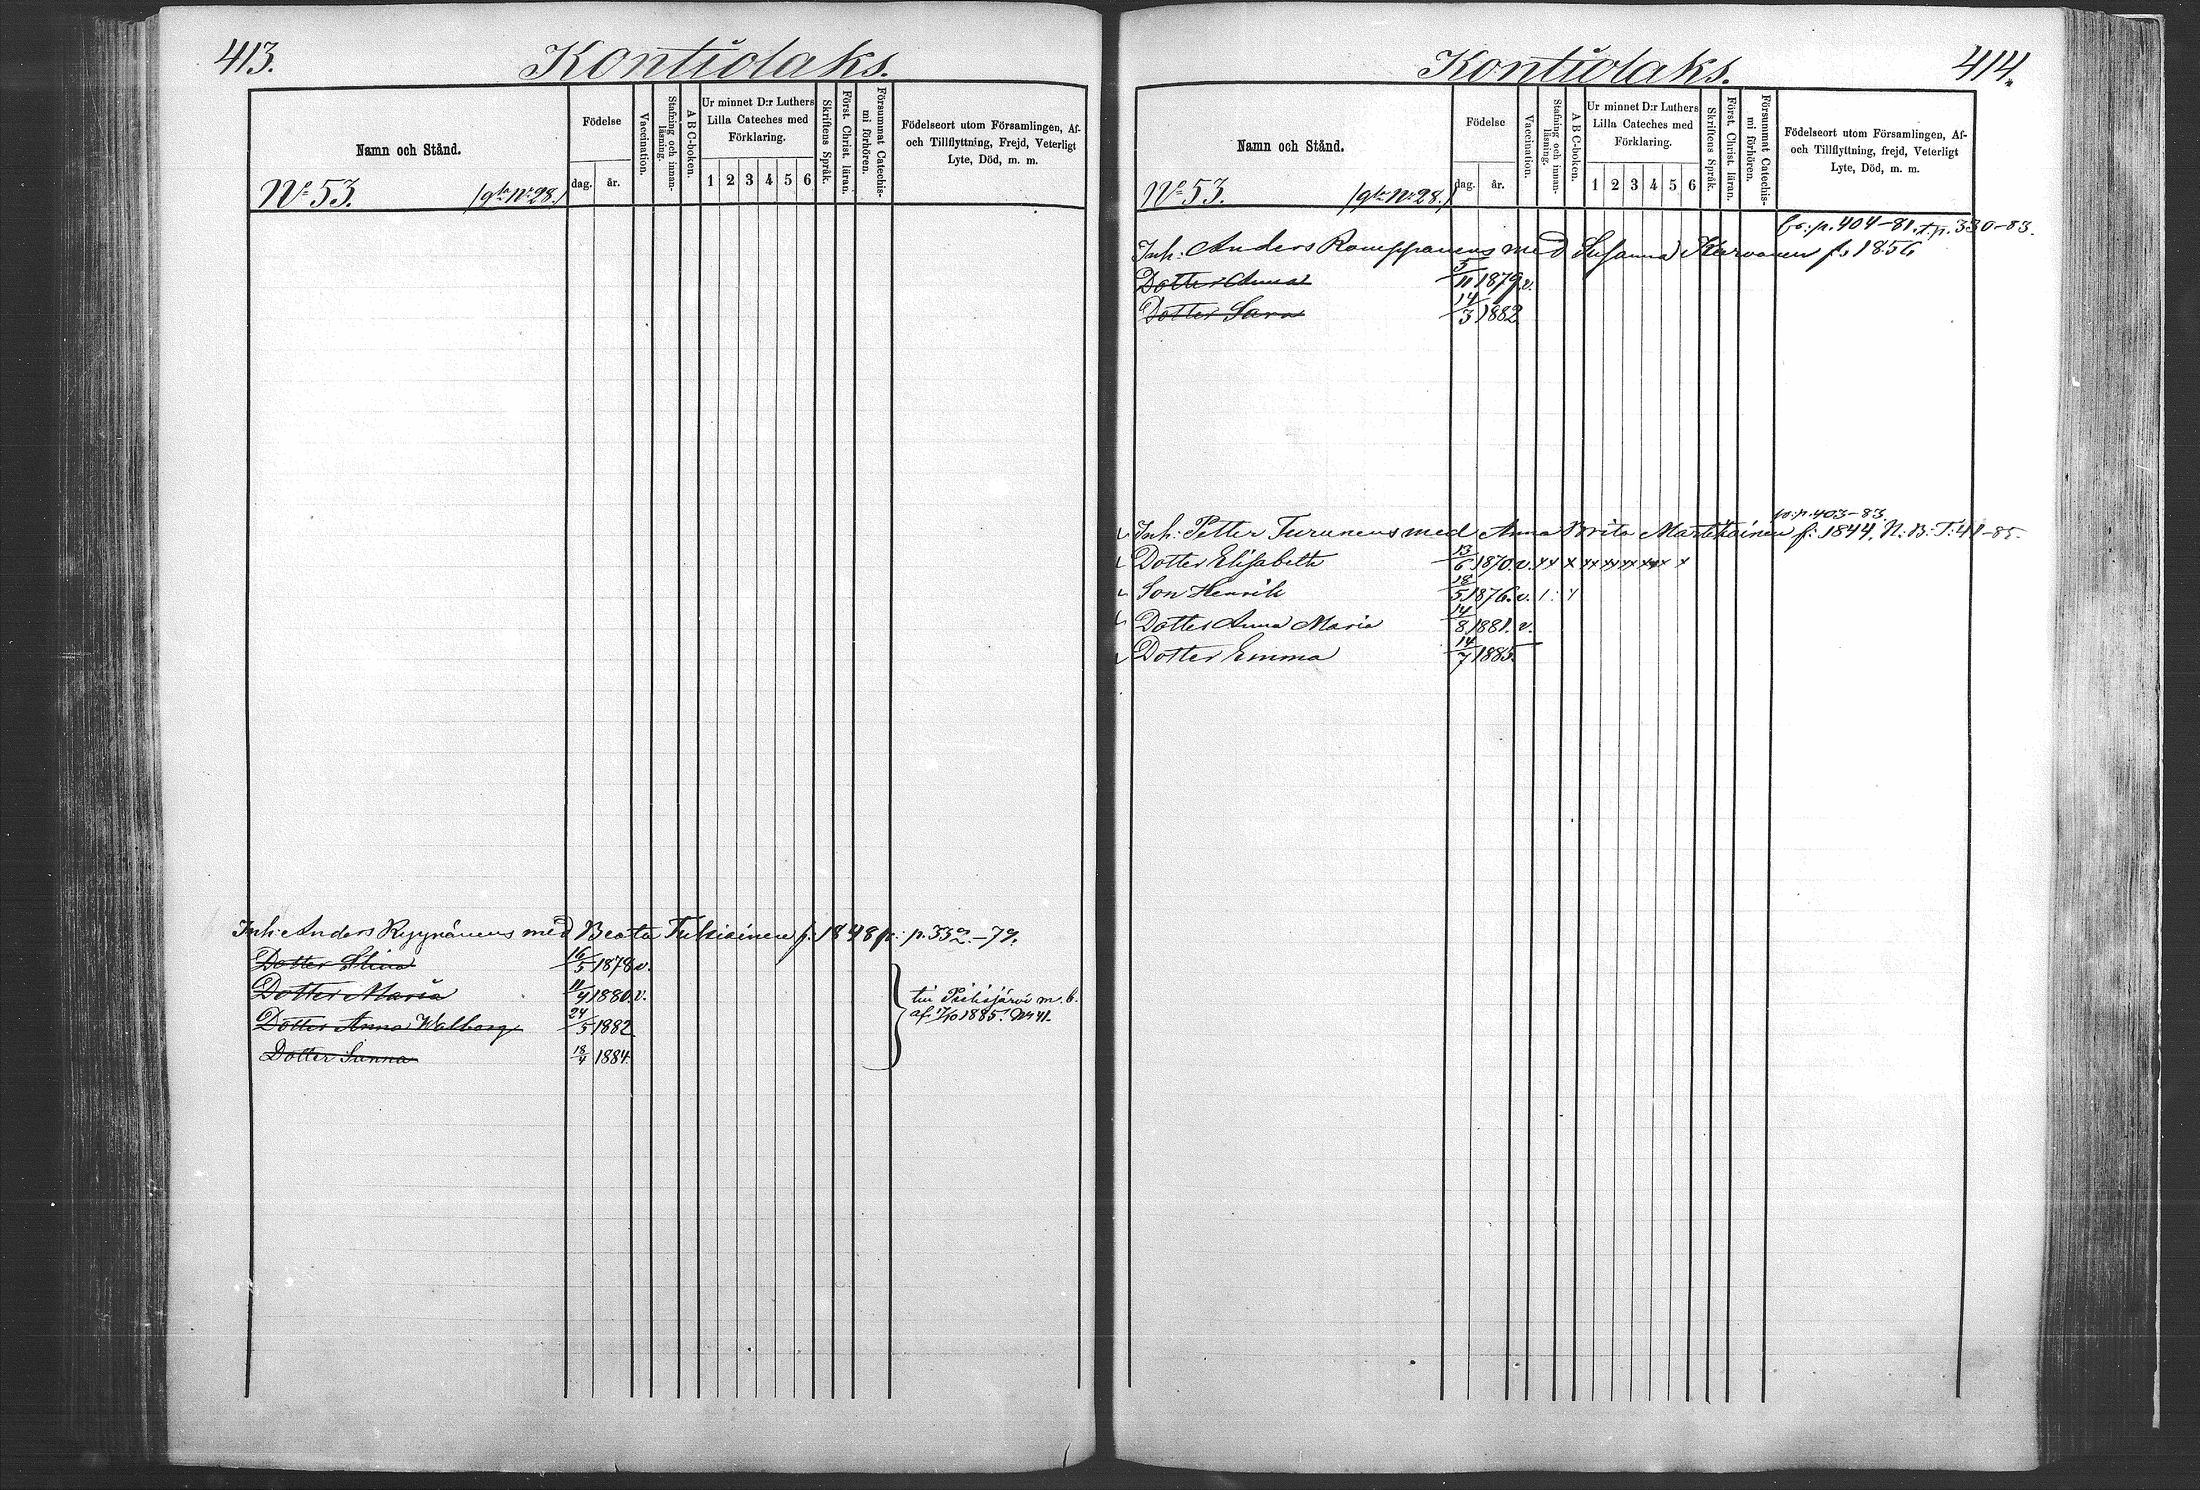 413.
Kontiolaks.
Namn och Stånd.
Födelse
dag.
år.
Vaccination.
Stafning och innanläsning.
A B C-boken.
Ur minnet D:r Luthers
Lilla Cateches med
Förklaring.
1 2 3 4 5 6
Skriftens Språk.
Först. Christ. läran.
Försummat Catechismi förhören.
Födelseort utom Församlingen, Af-
och Tillflyttning, Frejd, Veterligt
Lyte, Död, m. m.
No 53. /gla No 28./
Inh: Anders Ryynänens med Beata Tulsiainen f: 1848 fr: p. 332.-79.
Dotter Stina 16/5 1878 v.
Dotter Maria 11/4 1880. v.
Dotter Anna Walborg 24/5 1882
Dotter Sanna 18/4 1884.
till Pielisjärvi m. b.
af 1885. No 41.
414.
Kontiolaks.
Namn och Stånd.
Födelse
dag.
år.
Vaccination.
Stafning och innanläsning.
A B C-boken.
Ur minnet D:r Luthers
Lilla Cateches med
Förklaring.
1 2 3 4 5 6
Skriftens Språk.
Först. Christ. läran.
Försummat Catechismi förhören.
Födelseort utom Församlingen, Af-
och Tillflyttning, frejd, Veterligt
Lyte, Död, m. m.
No 53. /gla No 28./
fr: p. 404-81. t. p. 330-83.
Inh: Anders Romppanens med Susanna Karvonen f: 1856
Dotter Anna 5/11 1879 v.
Dotter Sara 14/3 1882
p. 403-83.
Inh: Petter Turunens med Anna Brita Martikainen f: 1844. N. B. T: 41-85.
Dotter Elisabeth 13/6 1870. v. xx x xx xx xx xx x
Son Henrik 18/5 1876. v.
Dotter Anna Maria 14/8 1881. v.
Dotter Emma 14/7 1885.